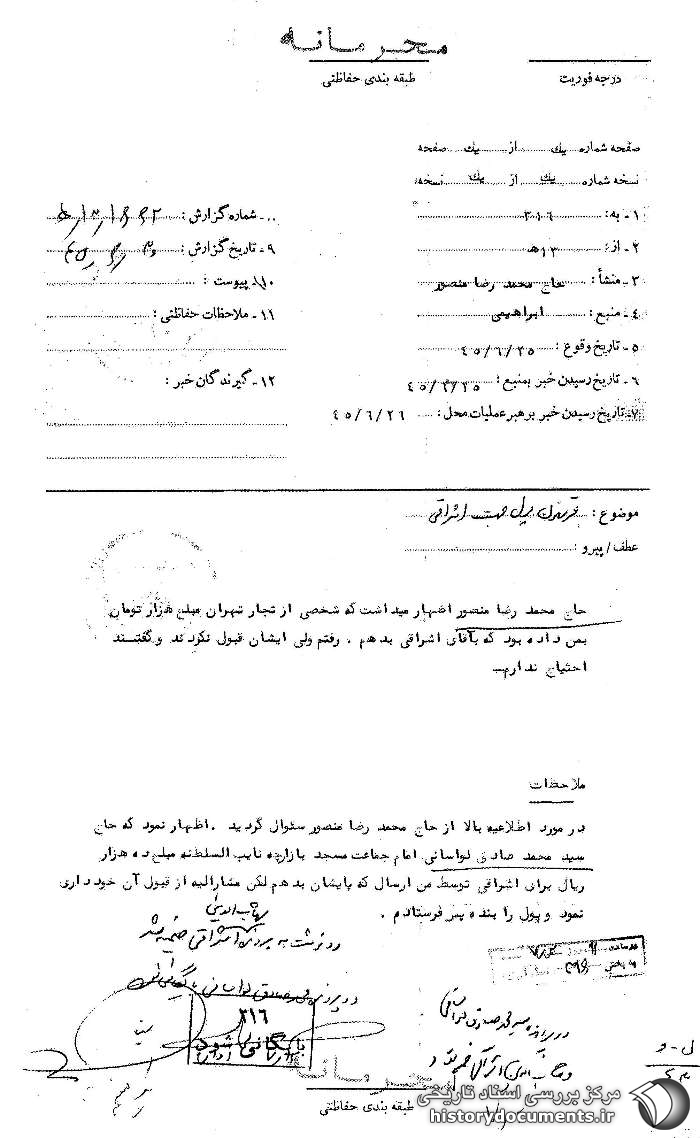 محرمانه
طبقه بندی حفاظتی
درجه فوریت
صفحه شماره یك از یك صفحه
نسخه شماره یك از یك نسخه
۱ - به: ۳۱۶
۲ - از: ۱۳ هـ
۳ - منشأ: حاج محمد رضا منصور
۴ - منبع: ابراهیمی
۵ - تاریخ وقوع: ۴۵/۶/۲۵
۶ - تاریخ رسیدن خبر بمنبع: ۴۵/۶/۲۵
۷ - تاریخ رسیدن خبر برهبر عملیات محل: ۴۵/۶/۲۶
شماره گزارش:
۹ - تاریخ گزارش:
۱۰ - پیوست:
۱۱ - ملاحظات حفاظتی:
۱۲ - گیرندگان خبر:
موضوع: اشراقی
عطف / پیرو:
حاج محمد رضا منصور اظهار میداشت که شخصی از تجار تهران مبلغ هزار تومان
بمن داده بود که بآقای اشراقی بدهم . رفتم ولی ایشان قبول نکردند و گفتند
احتیاج ندارم
ملاحظات
در مورد اطلاعیه بالا از حاج محمد رضا منصور سئوال گردید . اظهار نمود که حاج
سید محمد صادق لواسانی امام جماعت مسجد بازارچه نایب السلطنه مبلغ ده هزار
ریال برای اشراقی توسط من ارسال که بایشان بدهم لکن مشارالیه از قبول آن خودداری
نمود و پول را بنده پس فرستادم .
شهاب الدین
در پرونده سید محمد صادق لواسانی
۳۱۶
بایگانی شود
محرمانه
طبقه بندی حفاظتی
مرکز بررسی اسناد تاریخی
historydocuments.ir